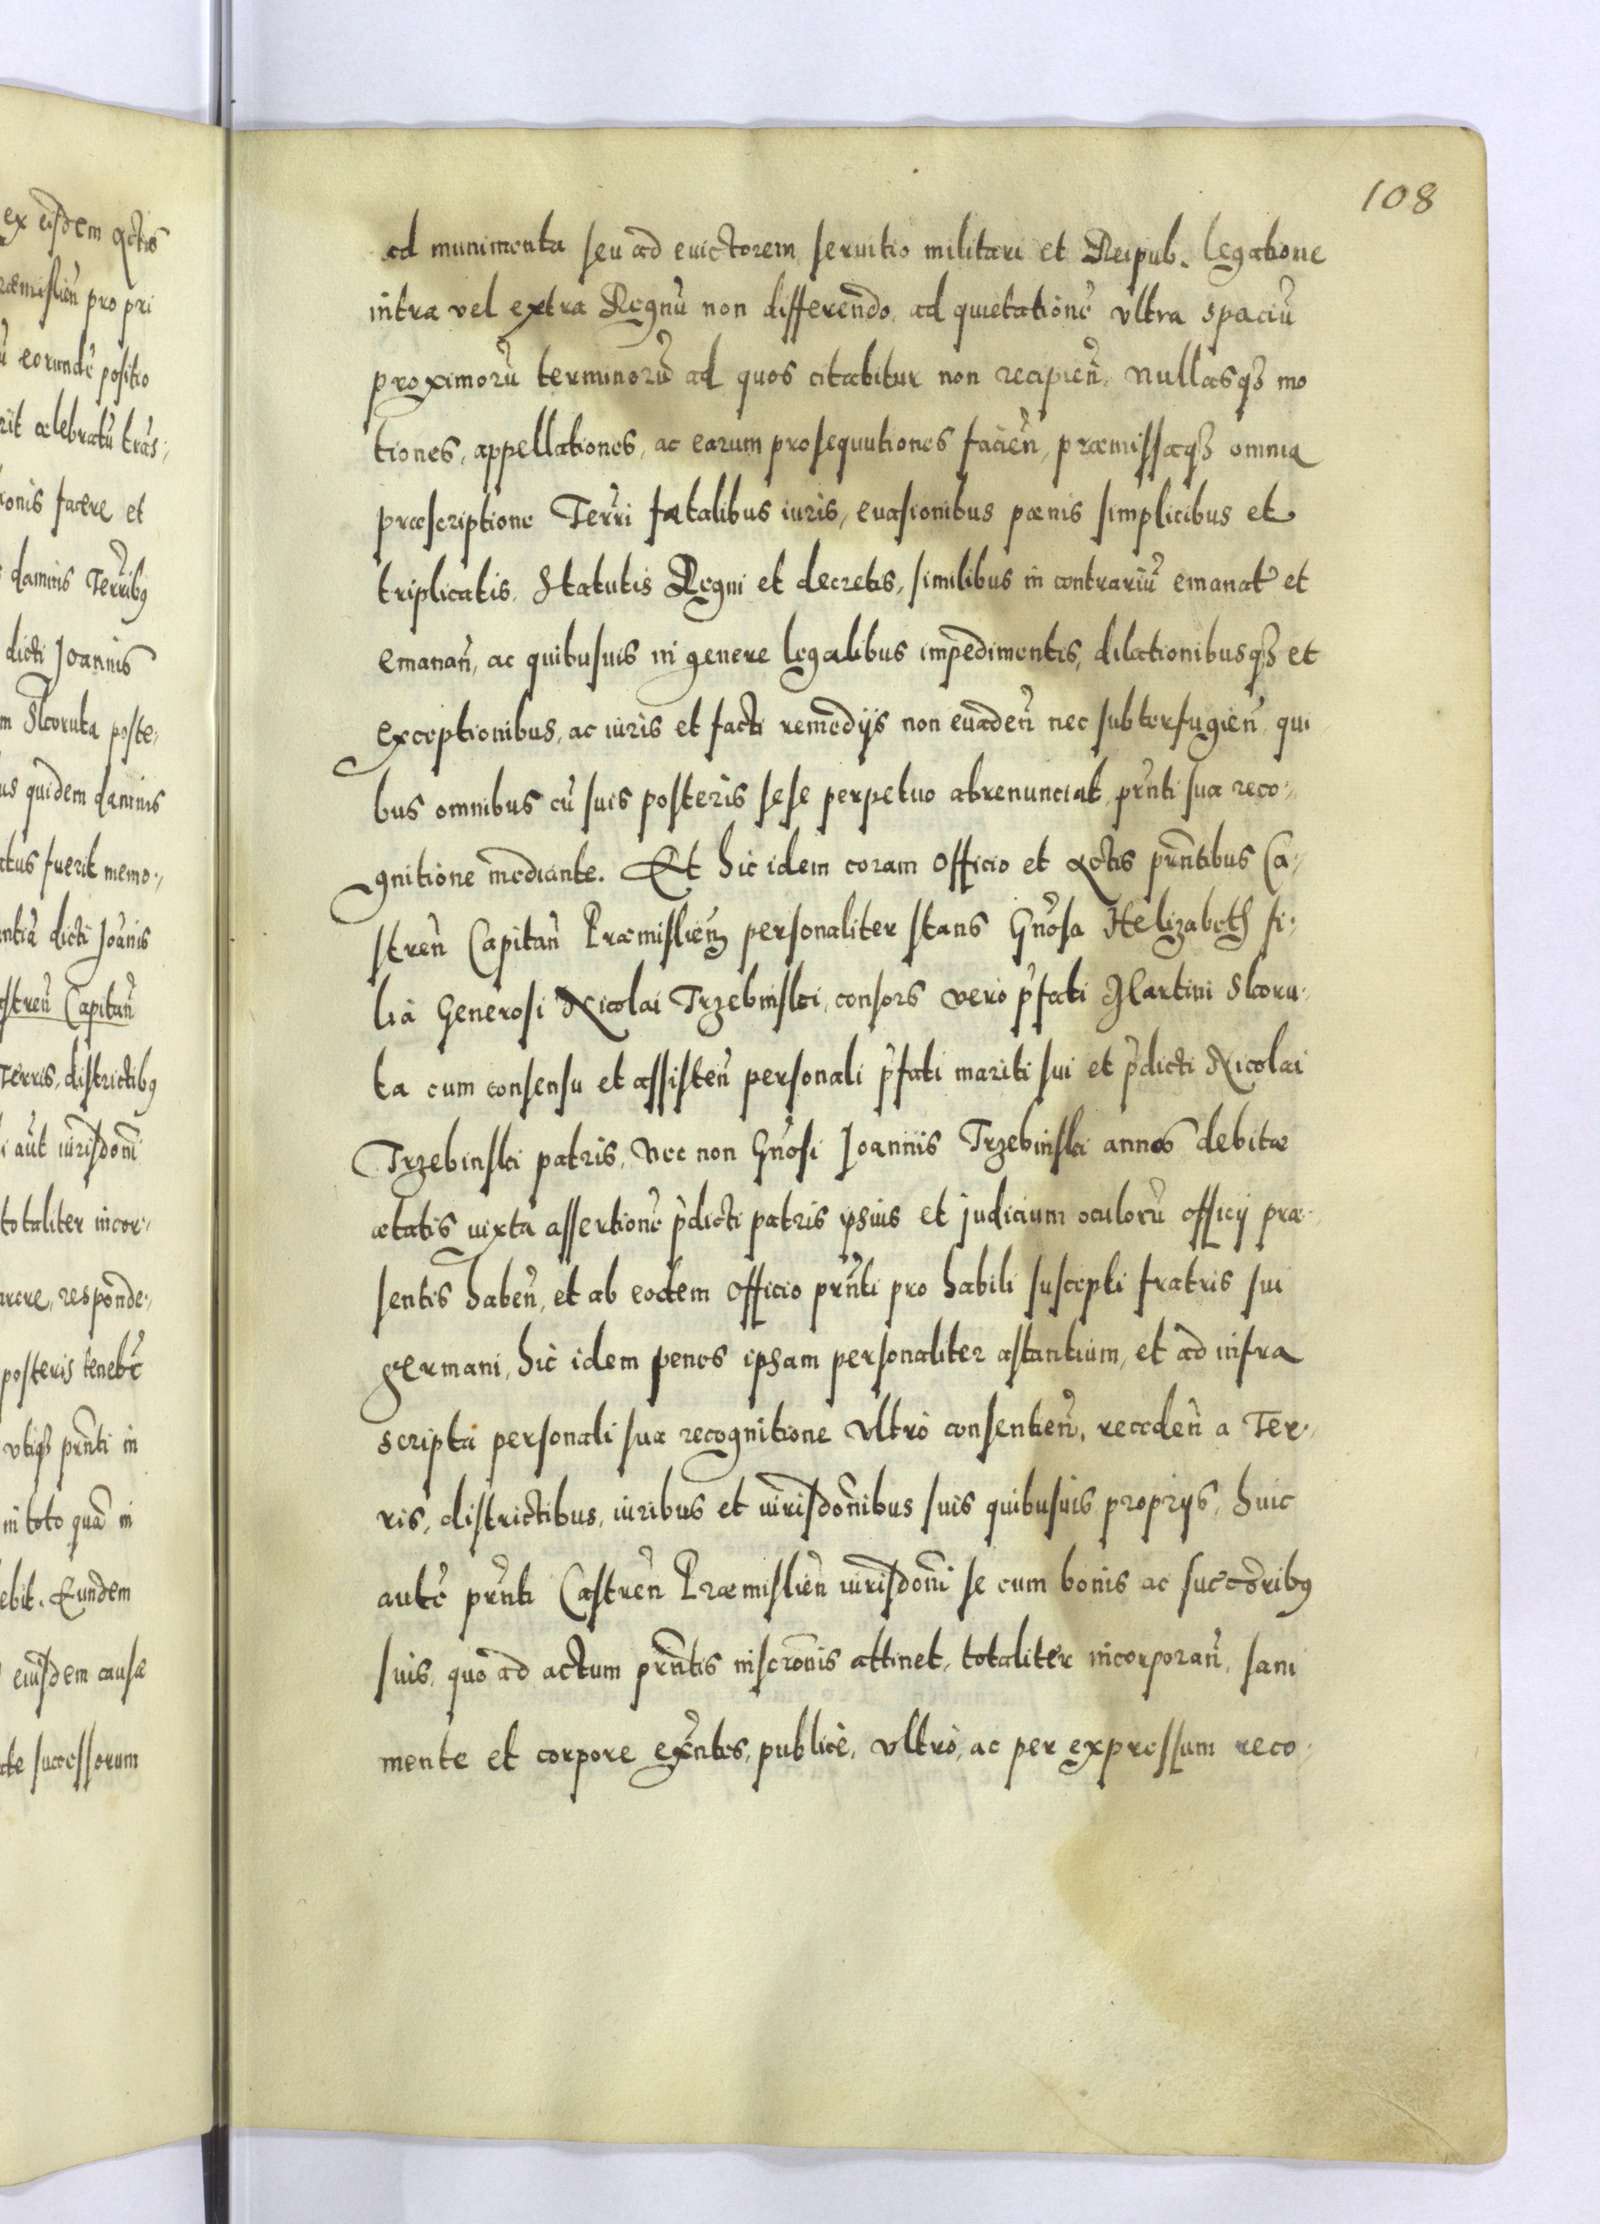 ex eisdem actis
ræmislien̄ pro pri
ū eorundē positio
rit celebratū trās,
ronis facere et
daminis Terribus
dicti Joannis
m Skoruta poste,
us quidem daminis
atus fuerit memo,
ntiā dicti Joānis
astren̄ Capitan̄
Terris, districtibus
i aūt iurisdōni
totaliter incor,
arere, responde,
posteris tenebr̄
utiqꝫ prn̄ti in
in toto quā in
ebit. Eundem
eiusdem causæ
te successorum
108
ad munimenta seu ad euictorem, seruitio militari et Reipub. legatione
intra vel extra Regnū non differendo, ad quietationē vltra spaciū
proximorū terminorū ad quos citabitur non recipien̄, nullasqꝫ mo
tiones, appellationes, ac earum prosequutiones facien̄, præmissaqꝫ omnia
præscriptione Terrī fatalibus iuris, euasionibus pænis simplicibus et
triplicatis, Statutis Regni et decretis, similibus in contrariū emanat̄ et
emanan̄, ac quibusuis in genere legalibus impedimentis, dilationibusqꝫ et
exceptionibus, ac iuris et facti remedijs non euaden̄ nec subterfugien̄ qui
bus omnibus cū suis posteris sese perpetuo abrenunciat, prn̄ti sua reco,
gnitione mediante. Et hic idem coram Officio et Actis prn̄tibus Ca,
stren̄ Capitan̄ Præmislien̄ personaliter stans Gn̄osa Helizabeth fi,
lia Generosi Nicolai Trzebinski, consors vero p̄fati Martini Skoru,
ta cum consensu et assisten̄ personali p̄fati mariti sui et p̄dicti Nicolai
Trzebinski patris, nec non Gn̄osi Joannis Trzebinski annos debitæ
ætatis iuxta assertionē p̄dicti patris ipsius et judicium oculorū officij præ,
sentis haben̄, et ab eodem Officio prn̄ti pro habili suscepti fratris sui
germani, hic idem penes ipsam personaliter astantium, et ad infra
scripta personali sua recognitione vltro consentien̄, receden̄ a Ter,
ris, districtibus, iuribus et iurisdōnibus suis quibusuis proprijs, huic
autē prn̄ti Castren̄ Præmislien̄ iurisdōni se cum bonis ac succōribus
suis, quo ad actum prn̄tis inscrōnis attinet, totaliter incorporan̄, sani
mente et corpore exn̄tes, publice, vltro, ac per expressum reco,